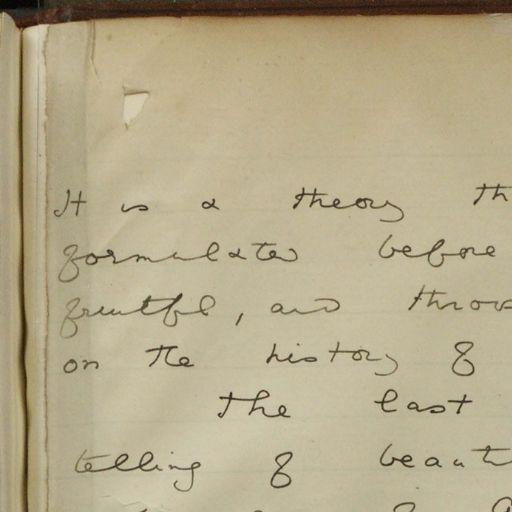 It is a theory th
formulated before
fruitful, and throws
on the history of
The last
telling of beaut